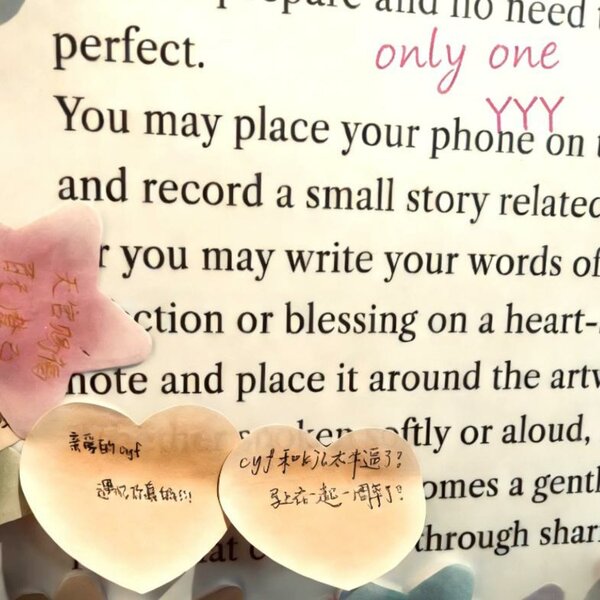 prepare and no need
perfect.
only one
YYY
You may place your phone on
and record a small story related
you may write your words of
ction or blessing on a heart-
note and place it around the artw
spoken softly or aloud,
omes a gentl
through shar
天官賜福
亲爱的cyf
遇见你真的!!!
cyf和
马上在一起一周年了?